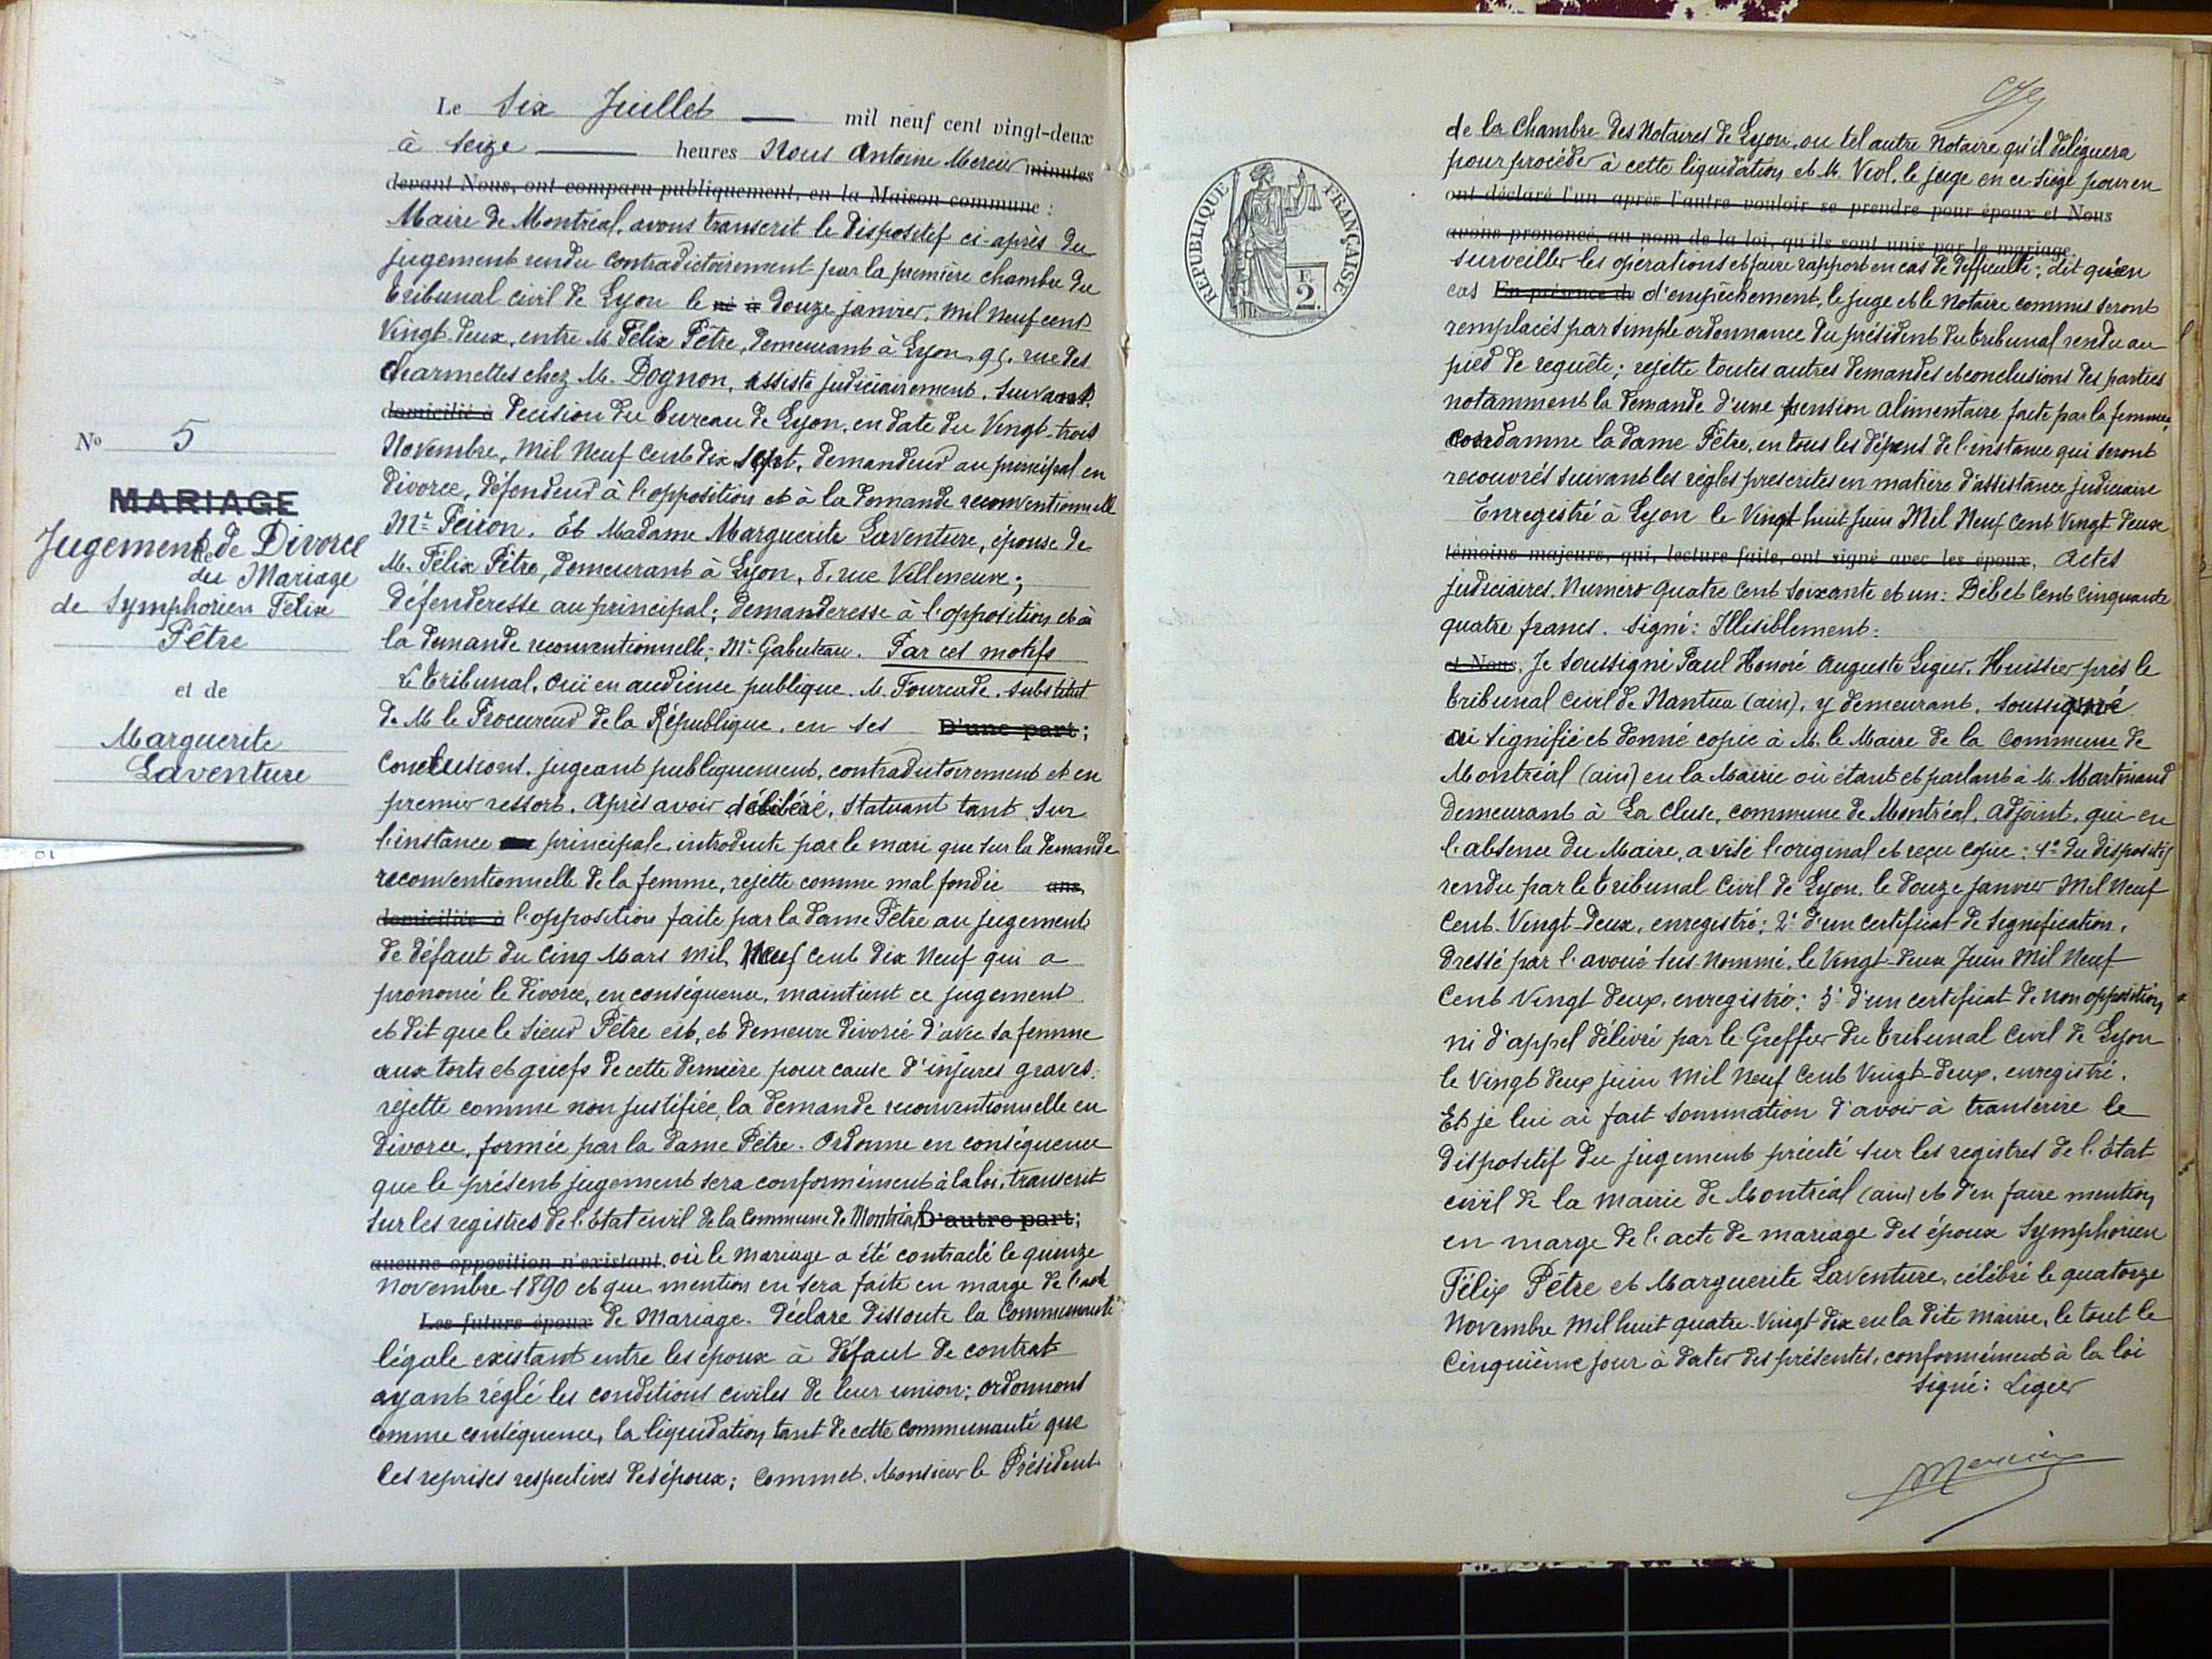 Le Six Juillet — mil neuf cent vingt-deux
à seize — heures Nous Antoine Mercier minutes
devant Nous, ont comparu publiquement, en la Maison commune :
Maire de Montréal, avons transcrit le dispositif ci-après du
jugement rendu contradictoirement par la première chambre du
tribunal civil de Lyon le né à douze janvier, mil neuf cent
Vingt-deux, entre M. Félix Pêtre, demeurant à Lyon, 95, rue des
Charmettes chez M. Dognon, assisté judiciairement, suivant
domicilié à décision du bureau de Lyon, en date du Vingt-trois
Novembre, Mil Neuf Cent dix sept, demandeur au principal en
divorce, défendeur à l'opposition et à la demande reconventionnelle
Me Peiron. Et Madame Marguerite Laventure, épouse de
M. Félix Pêtre, demeurant à Lyon, 8, rue Villeneuve ;
défenderesse au principal ; demanderesse à l'opposition et à
la demande reconventionnelle ; Me Gabuteau. Par ces motifs
Le tribunal, ouï en audience publique. M. Fourcade, substitut
de M le Procureur de la République, en ses D'une part ;
Conclusions, jugeant publiquement, contradictoirement et en
premier ressort. Après avoir délibéré, statuant tant sur
l'instance principale, introduite par le mari que sur la demande
reconventionnelle de la femme, rejette comme mal fondée ans,
domiciliée à l'opposition faite par la dame Pêtre au jugement
de défaut du Cinq Mars Mil Neuf Cent dix Neuf qui a
prononcé le divorce, en conséquence, maintient ce jugement
et dit que le sieur Pêtre est, et demeure divorcé d'avec sa femme
aux torts et griefs de cette dernière pour cause d'injures graves.
rejette comme non justifiée, la demande reconventionnelle en
divorce, formée par la dame Pêtre. Ordonne en conséquence
que le présent jugement sera conformément à la loi, transcrit
sur les registres de l'Etat civil de la Commune de Montréal D'autre part ;
aucune opposition n'existant, où le mariage a été contracté le quinze
Novembre 1890 et que mention en sera faite en marge de l'acte
Les futurs époux de Mariage. déclare dissoute la Communauté
légale existant entre les époux à défaut de contrat
ayant réglé les conditions civiles de leur union ; ordonnons
comme conséquence, la liquidation tant de cette communauté que
les reprises respectives des époux ; Commet. Monsieur le Président
No 5
MARIAGE
Jugement de Divorce
de
du Mariage
de Symphorien Félix
Pêtre
et de
Marguerite
Laventure
10
REPUBLIQUE FRANÇAISE
2 F.
de la Chambre des Notaires de Lyon, ou tel autre Notaire qu'il déléguera
pour procéder à cette liquidation et M. Viol, le juge en ce siège pour en
ont déclaré l'un après l'autre vouloir se prendre pour époux et Nous
avons prononcé, au nom de la loi, qu'ils sont unis par le mariage.
surveiller les opérations et faire rapport en cas de difficulté ; dit qu'en
cas En présence de d'empêchement, le juge et le Notaire commis seront
remplacés par simple ordonnance du président du tribunal rendu au
pied de requête ; rejette toutes autres demandes et conclusions des parties
notamment la demande d'une pension alimentaire faite par la femme,
condamne la dame Pêtre, en tous les dépens de l'instance qui seront
recouvrés suivant les règles prescrites en matière d'assistance judiciaire
Enregistré à Lyon le Vingt huit juin Mil Neuf Cent Vingt deux
témoins majeurs, qui, lecture faite, ont signé avec les époux, Actes
judiciaires, Numéro Quatre Cent Soixante et un : Débet Cent Cinquante
quatre francs. Signé : Illisiblement.
et Nous, Je soussigné Paul Honoré Auguste Liger, Huissier près le
tribunal Civil de Nantua (ain), y demeurant, soussigné
ai signifié et donné copie à M. le Maire de la Commune de
Montréal (ain) en la Mairie où étant et parlant à M. Martinand
demeurant à La Cluse, commune de Montréal, Adjoint, qui en
l'absence du Maire, a visé l'original et reçu copie : 1° du dispositif
rendu par le tribunal Civil de Lyon, le douze janvier Mil Neuf
Cent Vingt-deux, enregistré ; 2° d'un certificat de signification,
dressé par l'avoué sus-nommé, le Vingt-deux Juin Mil Neuf
Cent Vingt deux, enregistré ; 3° d'un certificat de non opposition
ni d'appel délivré par le Greffier du tribunal Civil de Lyon
le Vingt deux juin Mil Neuf Cent Vingt-deux, enregistré.
Et je lui ai fait sommation d'avoir à transcrire le
dispositif du jugement précité sur les registres de l'état
civil de la mairie de Montréal (ain) et d'en faire mention
en marge de l'acte de mariage des époux Symphorien
Félix Pêtre et Marguerite Laventure, célébré le quatorze
Novembre Mil huit quatre-Vingt dix en la dite Mairie, le tout le
Cinquième jour à dater des présentes, conformément à la loi
Signé : Liger
Mercier